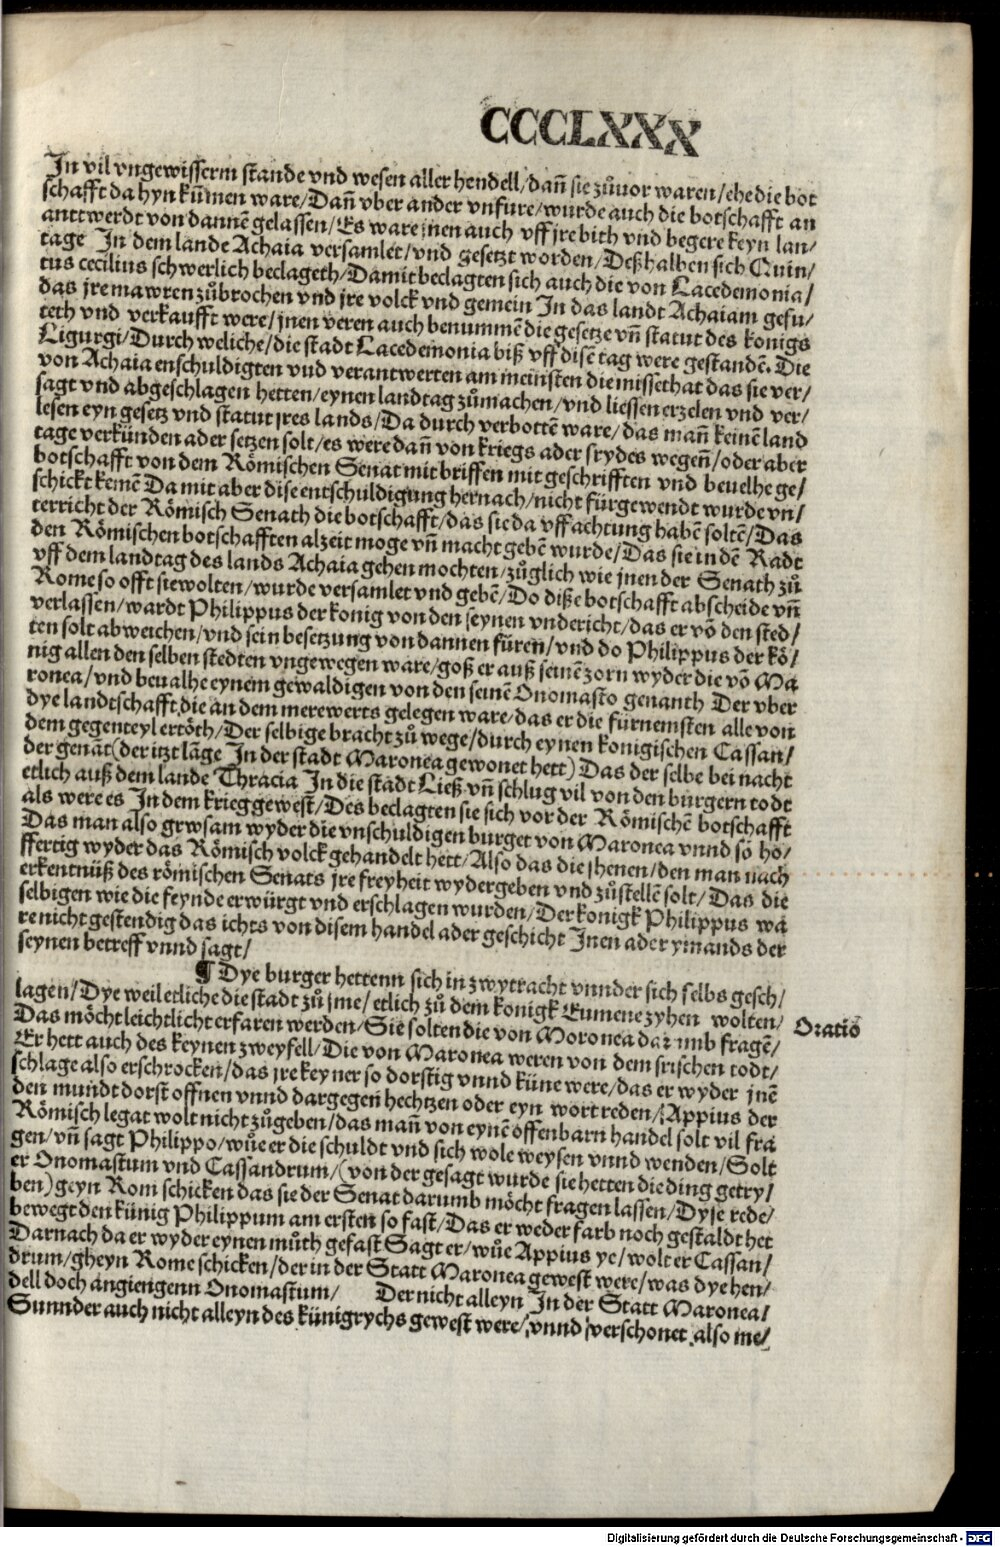 CCCCLXXX
In vil vngewisserm stande vnd wesen aller hendell/dañ sie zůuor waren/ehe die bot
schafft da hyn kũmen ware/Dañ vber ander vnfure/wurde auch die botschafft an
anttwerdt von dannẽ gelassen/Es ware jnen auch vff jre bith vnd begere keyn lan/
tage In dem lande Achaia versamlet/vnd gesetzt worden/Deßhalben sich Quin/
tus cecilius schwerlich beclageth/Damit beclagten sich auch die von Lacedemonia/
das jre mawren zůbrochen vnd jre volck vnd gemein In das landt Achaiam gefu/
teth vnd verkaufft were/jnen veren auch benummẽ die gesetze vñ statut des konigs
Ligurgi/Durch weliche/die stadt Lacedemonia biß vff disẽ tag were gestandẽ. Die
von Achaia enschuldigten vnd verantwerten am meinsten die missethat das sie ver/
sagt vnd abgeschlagen hetten/eynen landtag zůmachen/vnd liessen erzelen vnd ver/
lesen eyn gesetz vnd statut jres lands/Da durch verbottẽ ware/das mañ keinẽ land
tage verkünden ader setzen solt/es were dañ von kriegs ader frydes wegeñ/oder aber
botschafft von dem Römischen Senat mit briffen mit geschrifften vnd beuelhe ge/
schickt kemẽ Da mit aber dise entschuldigung hernach/nicht fürgewendt wurde vn/
terricht der Römisch Senath die botschafft/das sie da vff achtung habẽ soltẽ/Das
den Römischen botschafften alzeit moge vñ macht gebẽ wurde/Das sie in dẽ Radt
vff dem landtag des lands Achaia gehen mochten/zůglich wie jnen der Senath zů
Rome so offt sie wolten/wurde versamlet vnd gebẽ/Do diße botschafft abscheide vñ
verlassen/wardt Philippus der konig von den seynen vndericht/das er võ den sted/
ten solt abweichen/vnd sein besetzung von dannen füren/vnd do Philippus der kö/
nig allen den selben stedten vngewegen ware/goß er auß seinẽ zorn wyder die võ Ma
ronea/vnd beualhe eynem gewaldigen von den seinẽ Onomasto genanth Der vber
dye landtschafft die an dem merewerts gelegen ware/das er die fürnemsten alle von
dem gegenteyl ertöth/Der selbige bracht zů wege/durch eynen konigischen Cassan/
der genãt(der itzt lãge In der stadt Maronea gewonet hett) Das der selbe bei nacht
etlich auß dem lande Thracia In die stadt Ließ vñ schlug vil von den burgern todt
als were es In dem krieg gewest/Des beclagten sie sich vor der Römischẽ botschafft
Das man also grwsam wyder die vnschuldigen burget von Maronea vnnd so ho/
ffertig wyder das Römisch volck gehandelt hett/Also das die jhenen/den man nach
erkentnüß des römischen Senats jre freyheit wydergeben vnd zůstellẽ solt/Das die
selbigen wie die feynde erwürgt vnd erschlagen wurden/Der konigk Philippus wa
re nicht gestendig das ichts von disem handel ader geschicht Inen ader ymands der
seynen betreff vnnd sagt/
¶ Dye burger hettenn sich in zwytracht vnnder sich selbs gesch/
lagen/Dye weil etliche die stadt zů jme/etlich zů dem konigk Eumene zyhen wolten/
Das möcht leichtlicht erfaren werden/Sie solten die von Moronea darumb fragẽ/
Oratio
Er hett auch des keynen zweyfell/Die von Maronea weren von dem frischen todt/
schlage also erschrocken/das jre keyner so dorstig vnnd küne were/das er wyder jnẽ
den mundt dorst offnen vnnd dargegen hechtzen oder eyn wort reden/Appius der
Römisch legat wolt nicht zůgeben/das mañ von eynẽ offenbarn handel solt vil fra
gen/vñ sagt Philippo/wůe er die schuldt vnd sich wole weysen vnnd wenden/Solt
er Onomastum vnd Cassandrum/(von der gesagt wurde sie hetten die ding getry/
ben)geyn Rom schicken das sie der Senat darumb möcht fragen lassen/Dyse rede/
bewegt den künig Philippum am ersten so fast/Das er weder farb noch gestaldt het
Darnach da er wyder eynen můth gefast Sagt er/wůe Appius ye/wolt er Cassan/
drum/gheyn Rome schicken/der in der Statt Maronea gewest were/was dye hen/
dell doch angiengenn Onomastum/ Der nicht alleyn In der Statt Maronea/
Sunnder auch nicht alleyn des künigrychs gewest were/vnnd verschonet also me/
Digitalisierung gefördert durch die Deutsche Forschungsgemeinschaft - DFG